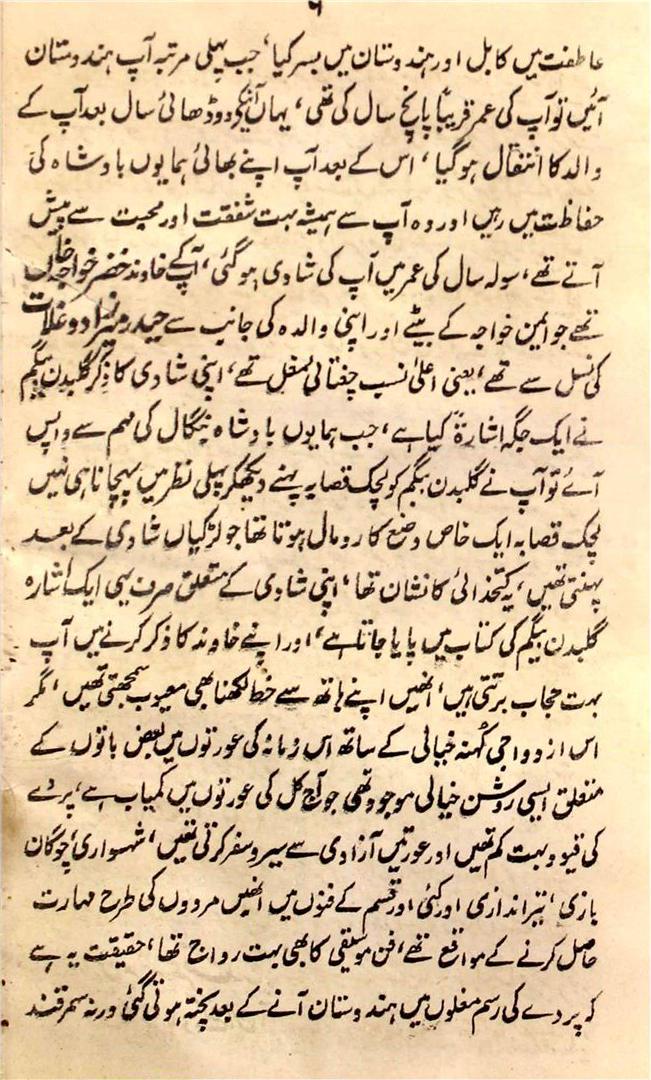 ۶
عاطفت میں کابل اور ہندوستان میں بسر کیا، جب پہلی مرتبہ آپ ہندوستان
آئیں تو آپ کی عمر قریباً پانچ سال کی تھی، یہاں آنیکے دو ڈھائی سال بعد آپ کے
والد کا انتقال ہوگیا، اس کے بعد آپ اپنے بھائی ہمایوں بادشاہ کی
حفاظت میں رہیں اور وہ آپ سے ہمیشہ بہت شفقت اور محبت سے پیش
آتے تھے، سولہ سال کی عمر میں آپ کی شادی ہوگئی، آپ کے خاوند خضر خواجہ خاں
تھے جو ایمن خواجہ کے بیٹے اور اپنی والدہ کی جانب سے حیدر مرزا دوغلات
کی نسل سے تھے، یعنی اعلیٰ نسب چغتائی مغل تھے، اپنی شادی کا ذکر گلبدن بیگم
نے ایک جگہ اشارۃً کیا ہے، جب ہمایوں بادشاہ بنگال کی مہم سے واپس
آئے تو آپ نے گلبدن بیگم کو لچک قصابہ پہنے دیکھکر پہلی نظر میں پہچانا ہی نہیں
لچک قصابہ ایک خاص وضع کا رومال ہوتا تھا جو لڑکیاں شادی کے بعد
پہنتی تھیں، یہ کتخدائی کا نشان تھا، اپنی شادی کے متعلق صرف یہی ایک اشارہ
گلبدن بیگم کی کتاب میں پایا جاتا ہے، اور اپنے خاوند کا ذکر کرنے میں آپ
بہت حجاب برتتی ہیں، انھیں اپنے ہاتھ سے خط لکھنا بھی معیوب سمجھتی تھیں، مگر
اس ازدواجی کُہنہ خیالی کے ساتھ اس زمانہ کی عورتوں میں بعض باتوں کے
متعلق ایسی روشن خیالی موجود تھی جو آج کل کی عورتوں میں کمیاب ہے، پردے
کی قیود بہت کم تھیں اور عورتیں آزادی سے سیر و سفر کرتی تھیں، شہسواری، چوگان
بازی، تیر اندازی اور کئی اور قسم کے فنوں میں انھیں مردوں کی طرح مہارت
حاصل کرنے کے مواقع تھے، فن موسیقی کا بھی بہت رواج تھا، حقیقت یہ ہے
کہ پردے کی رسم مغلوں میں ہندوستان آنے کے بعد پختہ ہوتی گئی ورنہ سمرقند